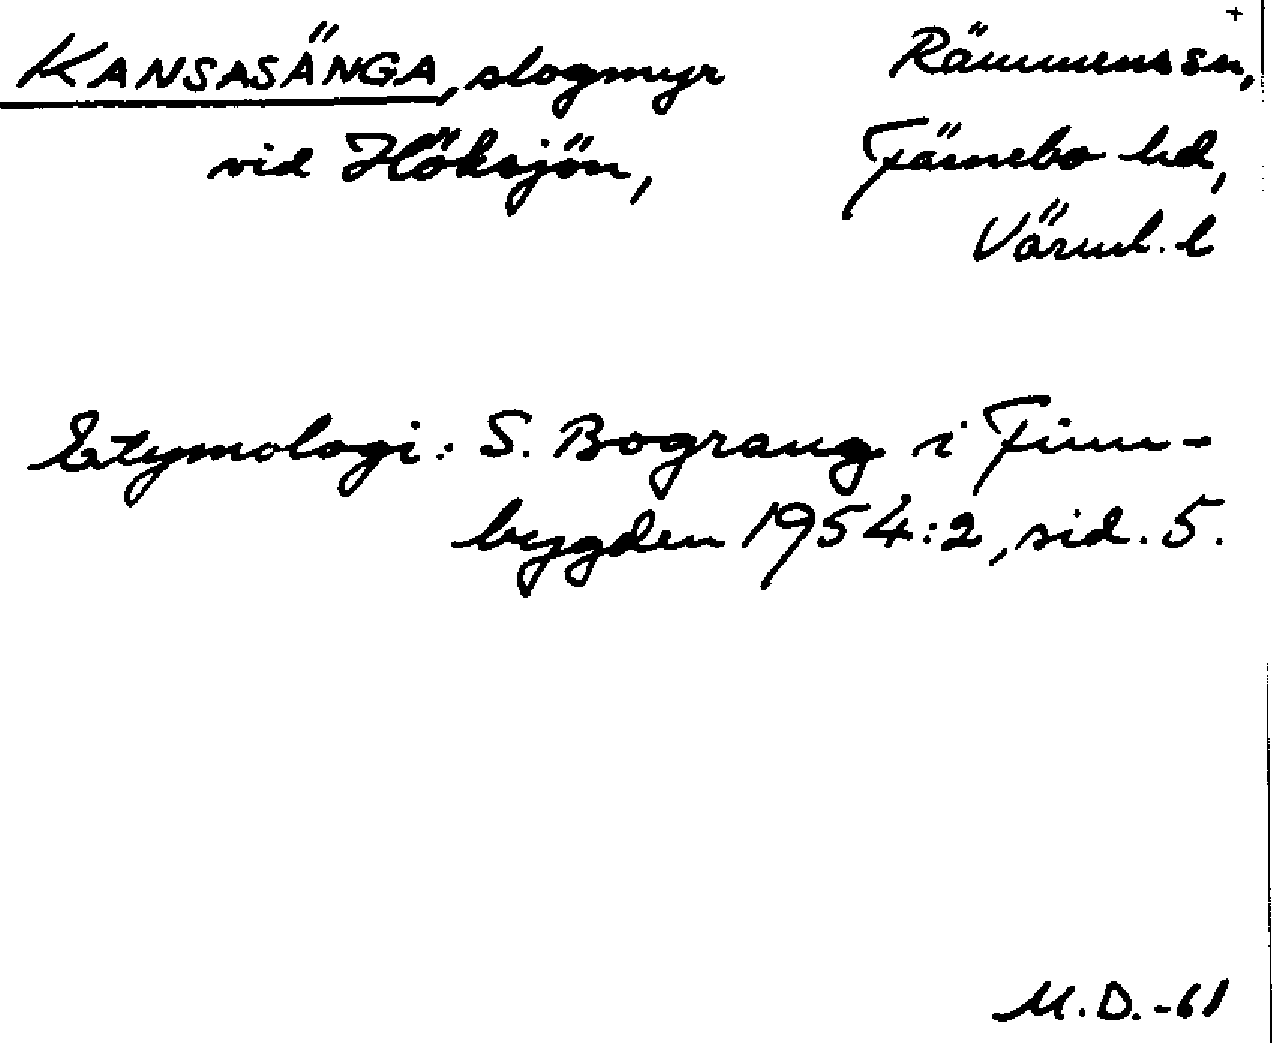 KANSASÄNGA, slogmyr Rämmens sn,
vid Höksjön, Färnebo hd,
Värml. l
Etymologi: S. Bograng i Finn-
bygden 1954:2, sid. 5.
M.D.-61